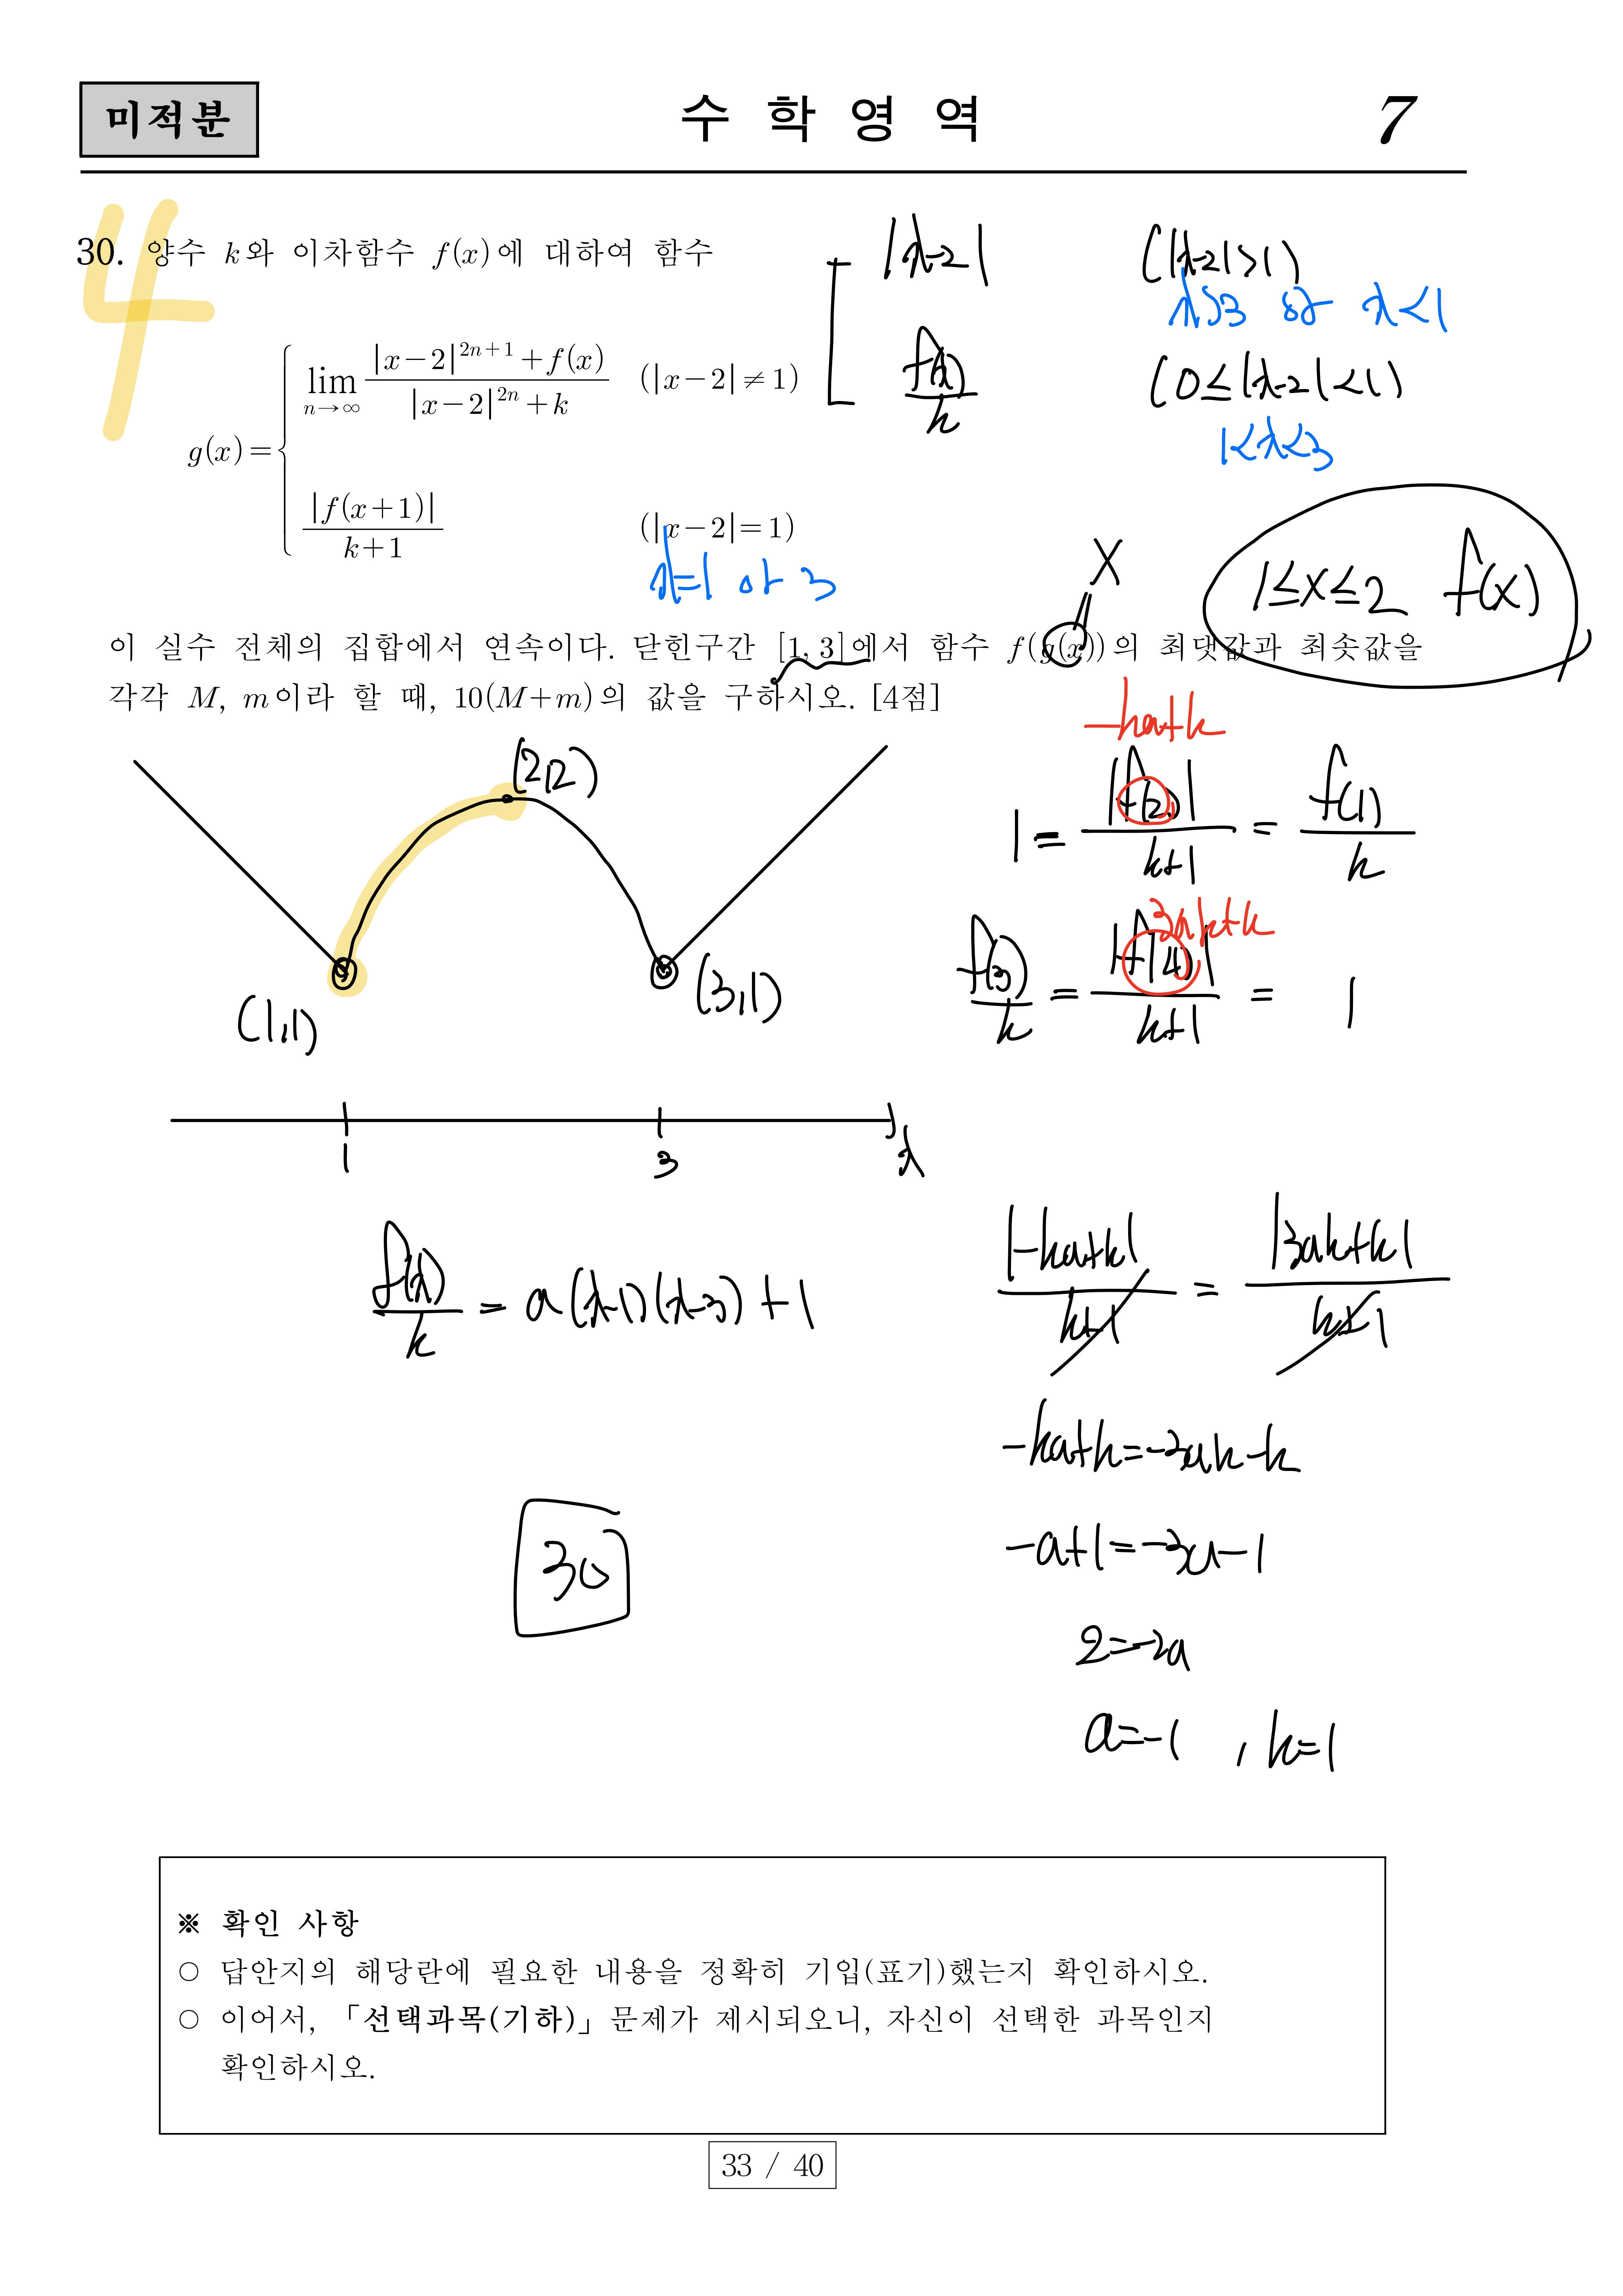 미적분
수 학 영 역
7
4
30. 양수 k와 이차함수 f(x)에 대하여 함수
g(x) = { lim n→∞ (|x−2|^{2n+1} + f(x)) / (|x−2|^{2n} + k) (|x−2| ≠ 1)
|f(x+1)| / (k+1) (|x−2| = 1)
x=1 or 3
이 실수 전체의 집합에서 연속이다. 닫힌구간 [1, 3]에서 함수 f(g(x))의 최댓값과 최솟값을
각각 M, m이라 할 때, 10(M+m)의 값을 구하시오. [4점]
|x-2| (|x-2|>1)
x>3 or x<1
f(x)/k (0≤|x-2|<1)
1<x<3
X
1≤X≤2 f(X)
-ka+k
1 = |f(2)|/(k+1) = f(1)/k
3ak+k
f(3)/k = |f(4)|/(k+1) = 1
(2,2)
(1,1)
(3,1)
1 3 x
f(x)/k = a(x-1)(x-3)+1
|-ka+k|/(k+1) = |3ak+k|/(k+1)
-ka+k=-3ak-k
-a+1=-3a-1
2=-2a
a=-1 , k=1
30
※ 확인 사항
○ 답안지의 해당란에 필요한 내용을 정확히 기입(표기)했는지 확인하시오.
○ 이어서, 「선택과목(기하)」 문제가 제시되오니, 자신이 선택한 과목인지
확인하시오.
33 / 40